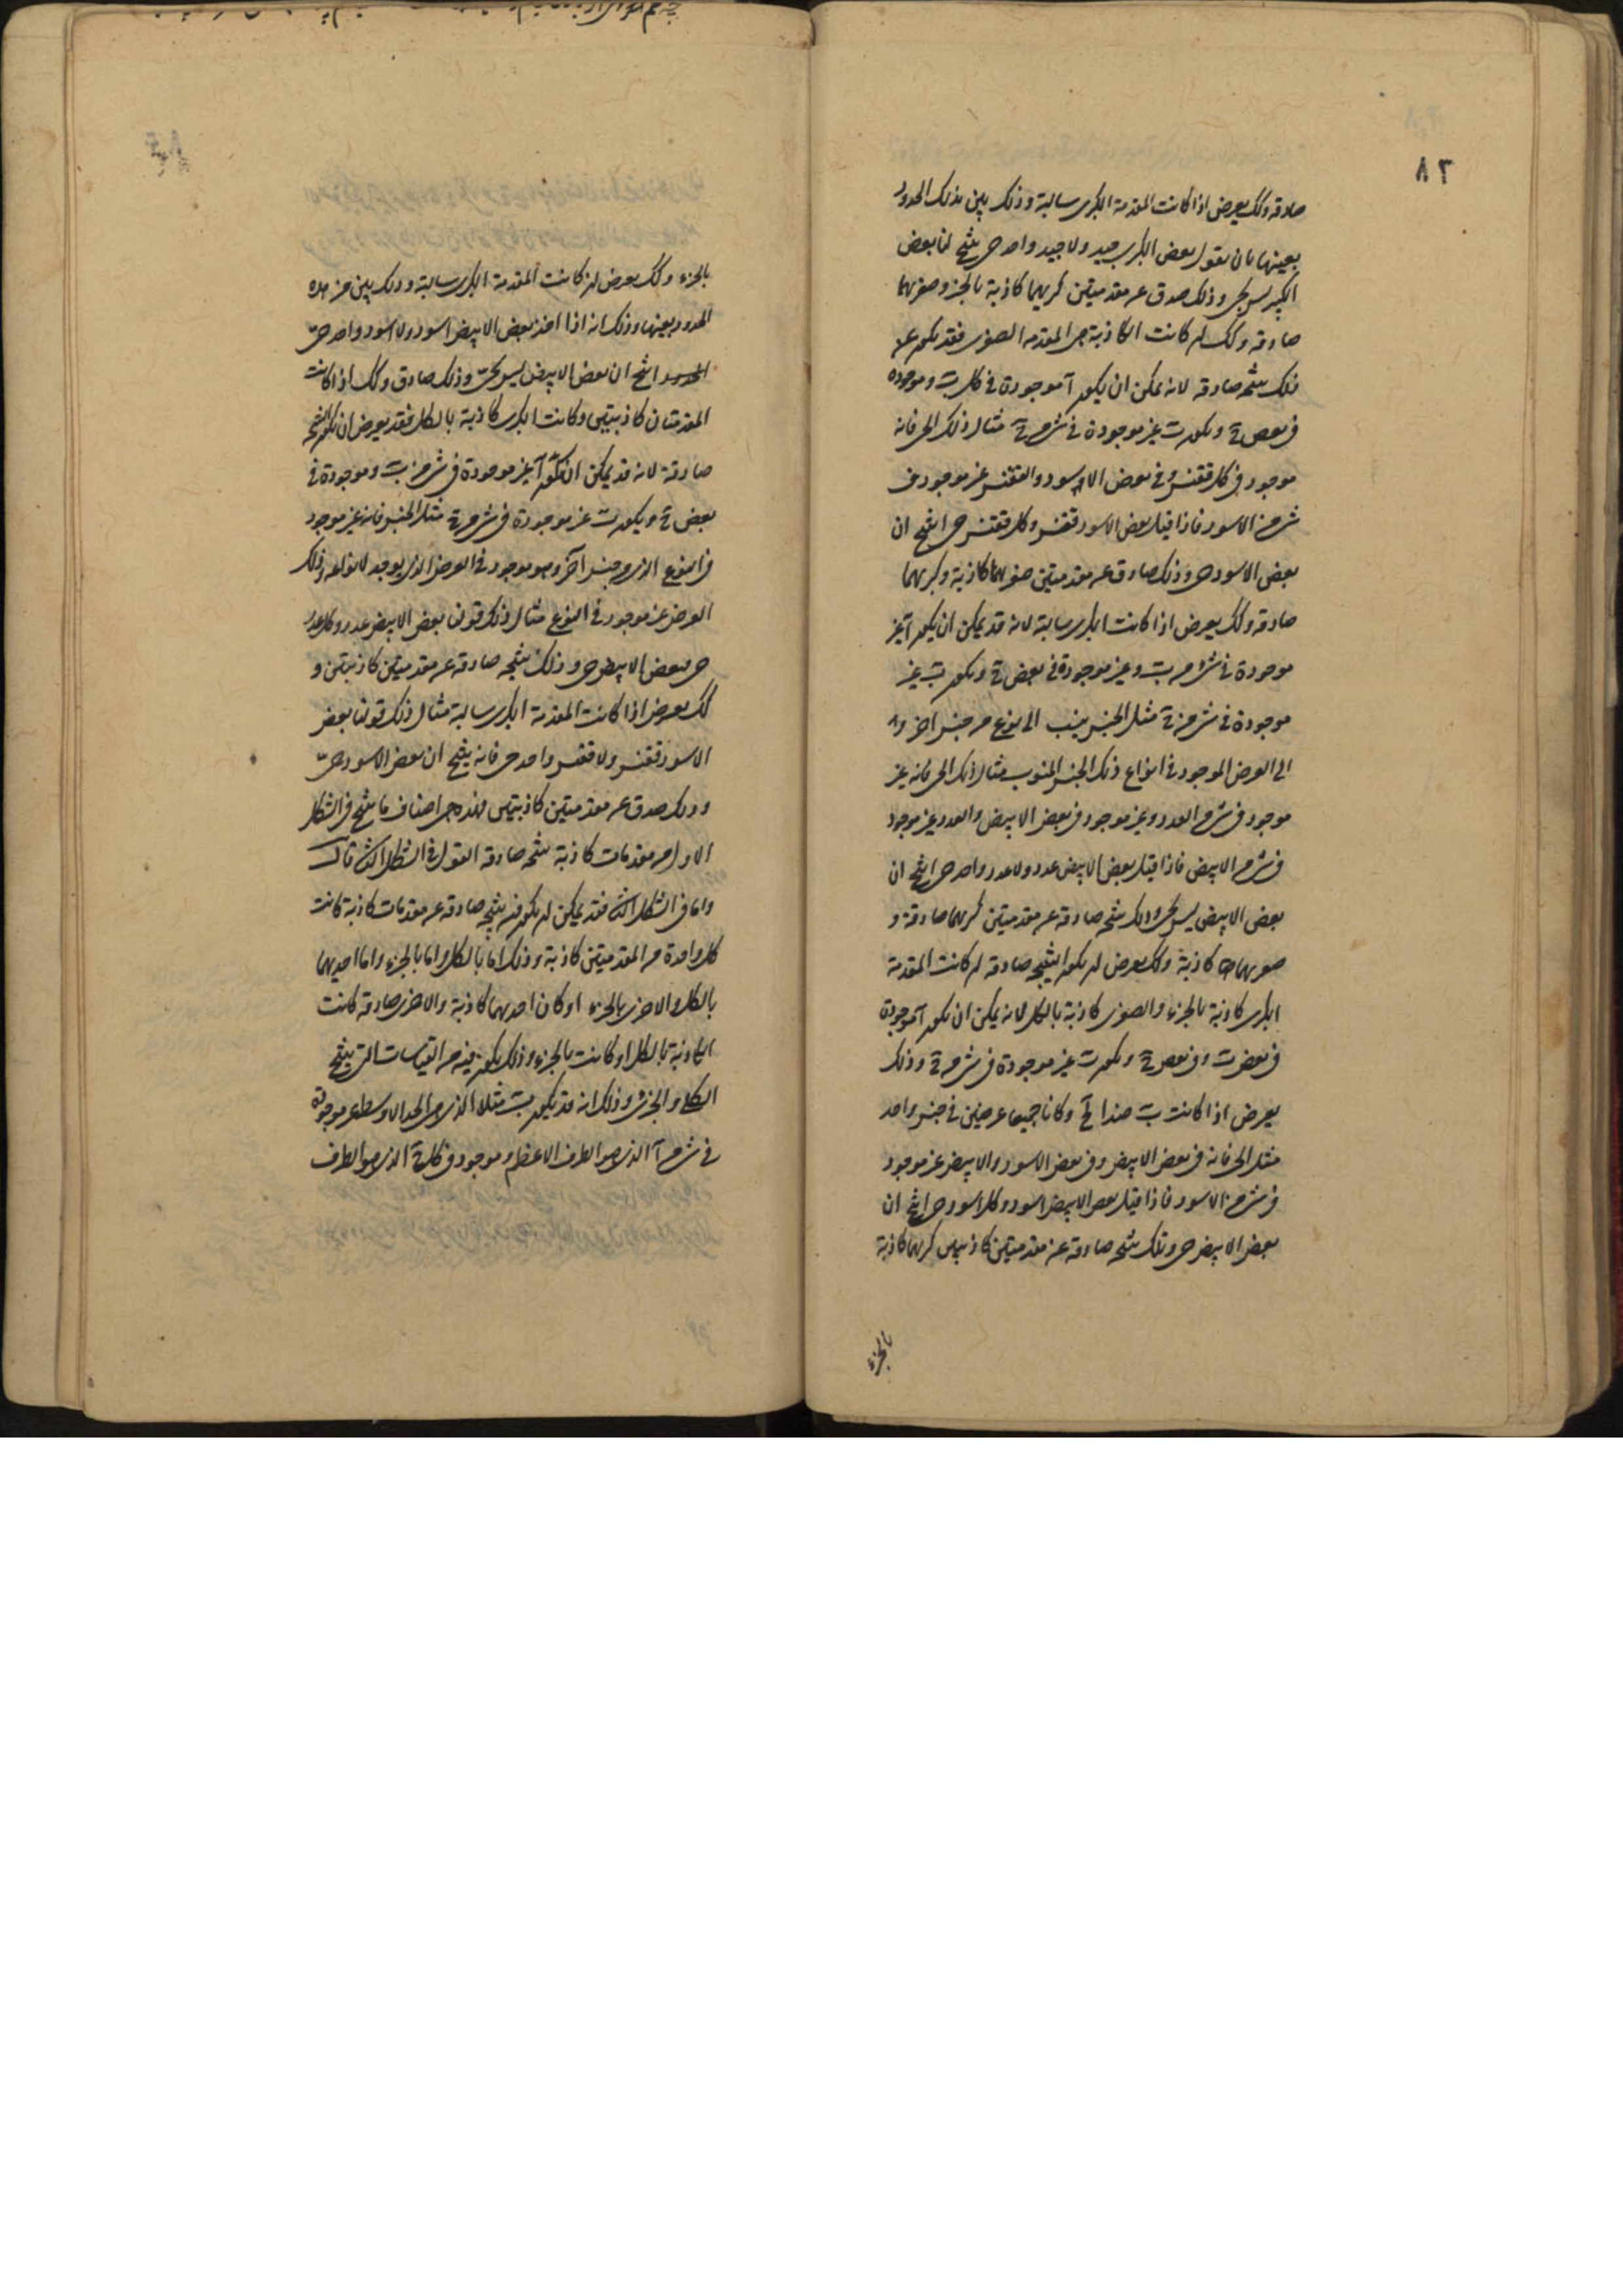 ٨٢
صادقه وكك يعرض اذا كانت المقدمة الكبرى سالبة وذلك يبين بذلك الحدود
بعينها بان نقول بعض الكبير جيد ولا جيد واحد حى ينتج لنا بعض
الكبير ليس بحى وذلك صدق عن مقدمتين كبريهما كاذبة بالجزء وصغريهما
صادقه وكك ان كانت الكاذبة هى المقدمه الصغرى فقد يكون عن
ذلك نتيجه صادقه لانه يمكن ان يكون آ موجودة فى كل ب وموجوده
فى بعض ج ويكون ب غير موجودة فى شئ من ج مثال ذلك الحى فانه
موجود فى كل ققنس وفى بعض الاسود والققنس غير موجود فى
شئ من الاسود فاذا قيل بعض الاسود ققنس وكل ققنس حى انتج ان
بعض الاسود حى وذلك صادق عن مقدمتين صغريهما كاذبة وكبريهما
صادقه وكك يعرض اذا كانت الكبرى سالبة لانه قد يمكن ان يكون آ غير
موجودة فى شئ من ب وغير موجودة فى بعض ج ويكون ب غير
موجودة فى شئ من ج مثل الجنس ينسب الى نوع من جنس اخر و
الى العرض الموجود فى انواع ذلك الجنس المنسوب مثال ذلك الحى فانه غير
موجود فى شئ من العدد وغير موجود فى بعض الابيض والعدد غير موجود
فى شئ من الابيض فاذا قيل بعض الابيض عدد ولا عدد واحد حى انتج ان
بعض الابيض ليس بحى وذلك نتيجه صادقه عن مقدمتين كبريهما صادقة و
صغريهما كاذبة وكك يعرض ان يكون النتيجه صادقه ان كانت المقدمة
الكبرى كاذبة بالجزء والصغرى كاذبة بالكل لانه يمكن ان يكون آ موجودة
فى بعض ب وفى بعض ج ويكون ب غير موجودة فى شئ من ج وذلك
يعرض اذا كانت ب ضدا لج وكانا جميعا عرضين فى جنس واحد
مثل الحى فانه فى بعض الابيض وفى بعض الاسود والابيض غير موجود
فى شئ من الاسود فاذا قيل بعض الابيض اسود وكل اسود حى انتج ان
بعض الابيض حى وتلك نتيجه صادقه عن مقدمتين كاذبتين كبريهما كاذبة
بالجزء
بالجزء وكك يعرض ان كانت المقدمة الكبرى سالبة وذلك يبين من هذه
الحدود بعينها وذلك انه اذا اخذ بعض الابيض اسود ولا اسود واحد حى
انتج ان بعض الابيض ليس بحى وذلك صادق وكك اذا كانت
المقدمتان كاذبتين وكانت الكبرى كاذبة بالكل فقد يعرض ان يكون النتيجه
صادقة لانه قد يمكن ان يكون آ غير موجودة فى شئ من ب وموجودة فى
بعض ج ويكون ب غير موجودة فى شئ من ج مثل الجنس فانه غير موجود
فى النوع الذى من جنس آخر وهو موجود فى العرض الذى يوجد لانواعه وذلك
العرض غير موجود فى النوع مثال ذلك قولنا بعض الابيض عدد وكل عدد
حى فبعض الابيض حى وذلك نتيجه صادقه عن مقدمتين كاذبتين و
كك يعرض اذا كانت المقدمة الكبرى سالبة مثال ذلك قولنا بعض
الاسود ققنس ولا ققنس واحد حى فانه ينتج ان بعض الاسود حى
وذلك صدق عن مقدمتين كاذبتين فهذه هى اصناف ما ينتج فى الشكل
الاول من مقدمات كاذبة نتيجه صادقه القول فى الشكل الثانى قال
واما فى الشكل الثانى فقد يمكن ان يكون فيه نتيجه صادقه عن مقدمات كاذبة كانت
كل واحدة من المقدمتين كاذبة وذلك اما بالكل واما بالجزء واما احديهما
بالكل والاخرى بالجزء او كان احديهما كاذبة والاخرى صادقه كانت
الكاذبة بالكل او كانت بالجزء وذلك يكون فيه من القياسات التى ينتج
الكلى والجزئى وذلك انه قد يكون ب مثلا الذى هى الحد الاوسط غير موجودة
فى شئ من آ الذى هو الطرف الاعظم وموجود فى كل ج الذى هو الطرف